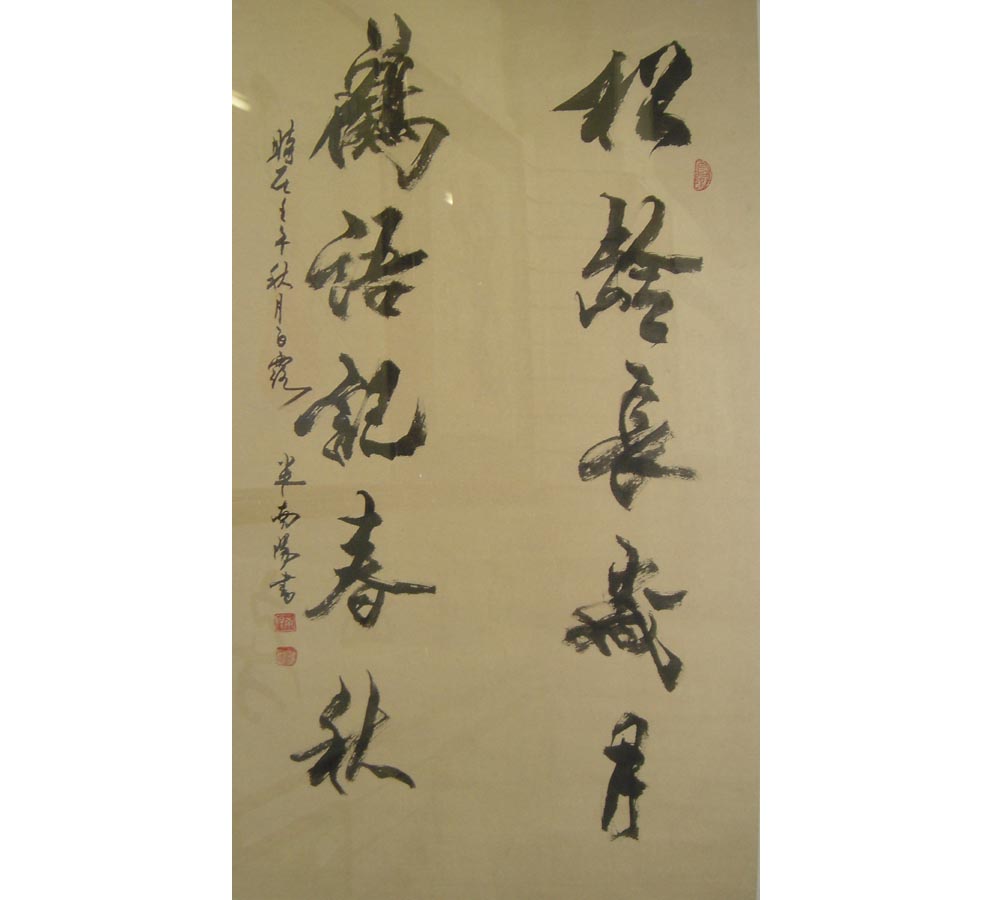 松齡長歲月
鶴語記春秋
時在壬午秋月白露 半南陽書